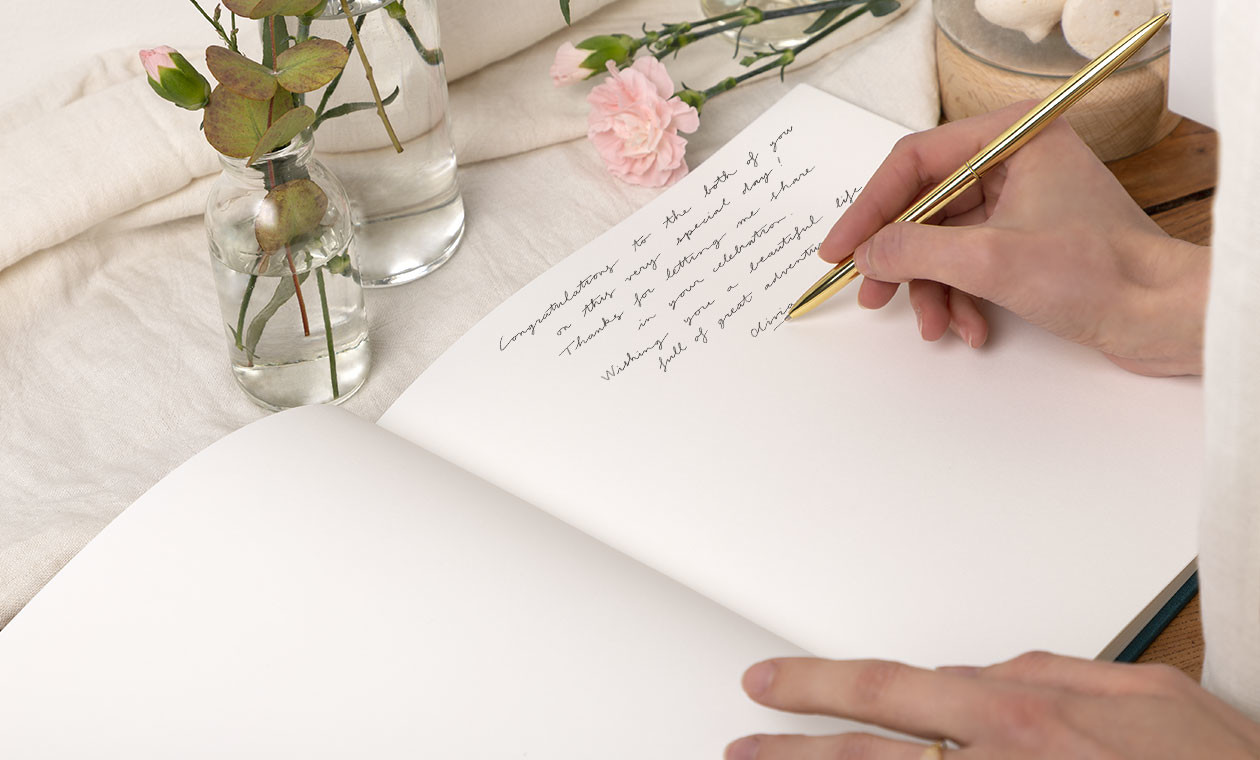 Congratulations to the both of you
on this very special day!
Thanks for letting me share
in your celebration.
Wishing you a beautiful life
full of great
Olivia